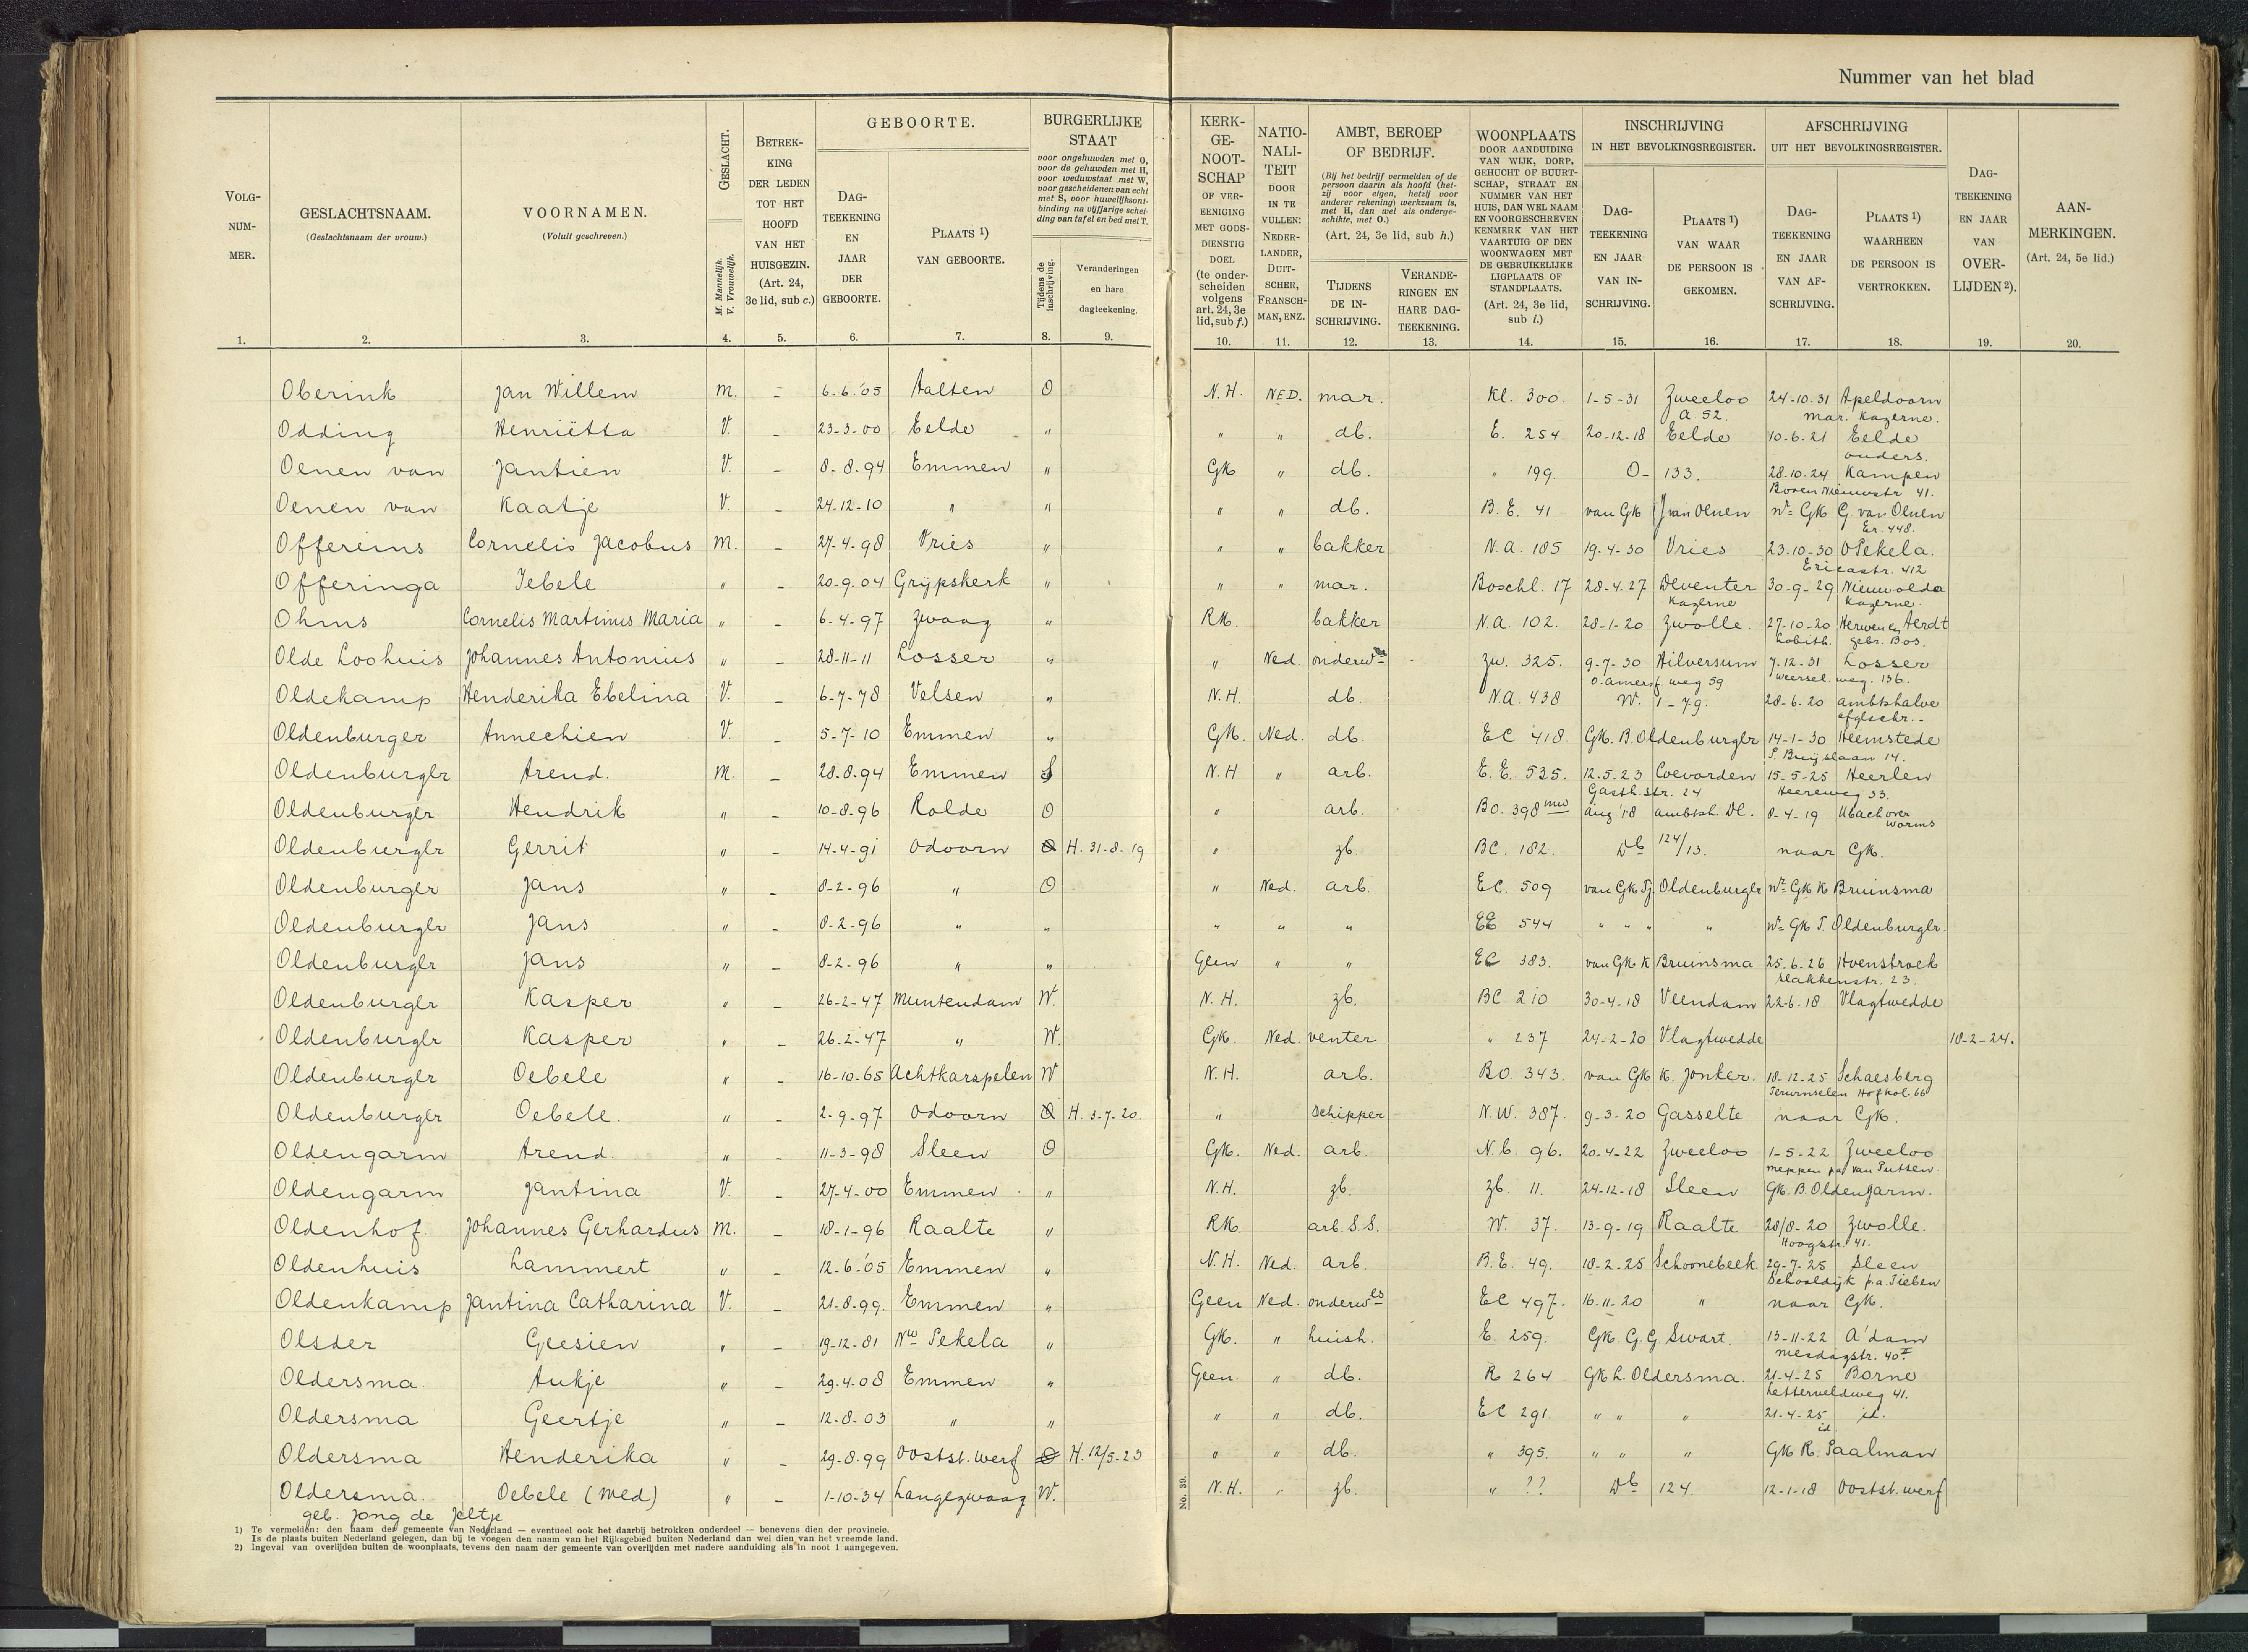 Nummer van het blad
VOLG-NUM-MER. GESLACHTSNAAM. (Geslachtsnaam der vrouw.) VOORNAMEN. (Voluit geschreven.) GESLACHT. M. Mannelijk. V. Vrouwelijk. BETREK-KING DER LEDEN TOT HET HOOFD VAN HET HUISGEZIN. (Art. 24, 3e lid, sub c.) GEBOORTE. DAG-TEEKENING EN JAAR DER GEBOORTE. PLAATS 1) VAN GEBOORTE. BURGERLIJKE STAAT voor ongehuwden met O, voor de gehuwden met H, voor weduwstaat met W, voor gescheidenen van echt met S, voor huwelijksont-binding na vijfjarige schei-ding van tafel en bed met T. Tijdens de inschrijving. Veranderingen en hare dagteekening.
KERK-GE-NOOT-SCHAP OF VER-EENIGING MET GODS-DIENSTIG DOEL (te onder-scheiden volgens art. 24, 3e lid, sub f.) NATIO-NALI-TEIT DOOR IN TE VULLEN: NEDER-LANDER, DUIT-SCHER, FRANSCH-MAN, ENZ. AMBT, BEROEP OF BEDRIJF. (Bij het bedrijf vermelden of de persoon daarin als hoofd (het-zij voor eigen, hetzij voor anderer rekening) werkzaam is, met H, dan wel als onderge-schikte, met O.) (Art. 24, 3e lid, sub h.) TIJDENS DE IN-SCHRIJVING. VERANDE-RINGEN EN HARE DAG-TEEKENING. WOONPLAATS DOOR AANDUIDING VAN WIJK, DORP, GEHUCHT OF BUURT-SCHAP, STRAAT EN NUMMER VAN HET HUIS, DAN WEL NAAM EN VOORGESCHREVEN KENMERK VAN HET VAARTUIG OF DEN WOONWAGEN MET DE GEBRUIKELIJKE LIGPLAATS OF STANDPLAATS. (Art. 24, 3e lid, sub i.) INSCHRIJVING IN HET BEVOLKINGSREGISTER. DAG-TEEKENING EN JAAR VAN IN-SCHRIJVING. PLAATS 1) VAN WAAR DE PERSOON IS GEKOMEN. AFSCHRIJVING UIT HET BEVOLKINGSREGISTER. DAG-TEEKENING EN JAAR VAN AF-SCHRIJVING. PLAATS 1) WAARHEEN DE PERSOON IS VERTROKKEN. DAG-TEEKENING EN JAAR VAN OVER-LIJDEN 2). AAN-MERKINGEN. (Art. 24, 5e lid.)
1. 2. 3. 4. 5. 6. 7. 8. 9. 10. 11. 12. 13. 14. 15. 16. 17. 18. 19. 20.
Oberink Jan Willem M. - 6.6.'05 Aalten O N.H. NED. mar. Kl. 300. 1-5-31 Zweeloo 24-10.31 Apeldoorn
A 52. mar. Kazerne.
Odding Henriëtta V. - 23-3-00 Eelde " " " db. E. 254 20-12-18 Eelde 10-6.21 Eelde
ouders.
Oenen van Jantien V. - 8-8.94 Emmen " GK " db. " 199. O- 133. 28.10-24 Kampen
Boven Nieuwstr 41.
Oenen van Kaatje V. - 24-12-10 " " " " db. B.E. 41 van GK J van Oenen nr GK G. van Oenen
Er. 448.
Offereins Cornelis Jacobus M. - 27-4-98 Vries " " " bakker N.A. 185 19-4-30 Vries 23-10-30 O Pekela.
Ericastr. 412
Offeringa Iebele " - 20-9.04 Grijpskerk " " " mar. Boschl. 17 28-4.27 Deventer 30-9-29 Nieuwolda
Kazerne Kazerne.
Ohms Cornelis Martinus Maria " - 6-4-97 Zwaag " RK. bakker N.A. 102. 28-1-20 Zwolle. 27-10-20 Herwen en Aerdt
Lobith. gebr. Bos.
Olde Loohuis Johannes Antonius " - 28-11-11 Losser " " Ned. onderw. zw. 325. 9-7-30 Hilversum 7-12-31 Losser
O. Amersf. weg 59 weersel. weg. 136.
Oldekamp Henderika Ebelina V. - 6-7-78 Velsen " N.H. db. N.A. 438 W. 1-79. 28-6.20 ambtshalve
afgeschr.-
Oldenburger Annechien V. - 5-7-10 Emmen " GK. Ned. db. EC 418. GK. B. Oldenburger 14-1-30 Heemstede
Oldenburger Arend. M. - 28.8.94 Emmen S N.H " arb. E.E. 535. 12.5.23 Coevorden 15-5-25 Heerlen
Gasth.str. 24 Heereweg 33.
Oldenburger Hendrik " - 10-8-96 Rolde O " arb. BO. 398 aug '18 ambtsh. Dl. 8-4-19 Ubach over
worms
Oldenburger Gerrit " - 14-4-91 Odoorn O H. 31-8-19 " zb. BC. 182. Db 124/13. naar GK.
Oldenburger Jans " - 8-2-96 " O " Ned. arb. EC. 509 van GK Tj. Oldenburger nr GK K Bruinsma
Oldenburger Jans " - 8-2-96 " " " " " EE 544 " " " " nr GK T. Oldenburger.
Oldenburger Jans " - 8-2-96 " " Geen " " EC 383. van GK K Bruinsma 25-6.26 Hoensbroek
Slakkenstr. 23.
Oldenburger Kasper " - 26-2-47 Muntendam W. N.H. zb. BC 210 30-4-18 Veendam 22-6.18 Vlagtwedde
Oldenburger Kasper " - 26.2-47 " W. GK. Ned. venter " 237 24-2-20 Vlagtwedde 18-2-24.
Oldenburger Oebele " - 16-10-65 Achtkarspelen W N.H. arb. BO. 343. van GK K. Jonker. 18-12-25 Schaesberg
Terwinselen Hofkol. 66
Oldenburger Oebele. " - 2-9-97 Odoorn O H. 3-7-20. " schipper N.W. 387. 9-3-20 Gasselte naar GK.
Oldengarm Arend " - 11-3-98 Sleen O GK. Ned. arb. N.C. 96. 20-4-22 Zweeloo 1-5-22 Zweeloo
meppen pa van Putten.
Oldengarm Jantina V. 27-4-00 Emmen " N.H. zb. zb. 11. 24-12-18 Sleen GK. B. Oldengarm.
Oldenhof Johannes Gerhardus M. - 18-1-96 Raalte " RK. arb. S.S. W. 37. 13-9-19 Raalte 28/8-20 Zwolle.
Hoogstr. 41.
Oldenhuis Lammert " - 12-6-'05 Emmen " N.H. Ned. arb. B.E. 49. 18-2-25 Schoonebeek. 29-7-25 Sleen
Schooldijk p.a. Tieben
Oldenkamp Jantina Catharina V. - 21-8-99. Emmen " Geen Ned. onderwes EC 497. 16-11-20 " naar GK.
Olsder Geesien " - 19-12-81 Nw Pekela " GK. " huish. E. 259. GK. G.G. Swart. 13-11-22 A'dam
Mesdagstr. 40 I
Oldersma Aukje " - 29-4-08 Emmen " Geen " db. R 264 GK L. Oldersma. 21-4-25 Borne
Letterveldweg 41.
Oldersma Geertje " - 12-8-03 " " " " db. EC 291. " " " 21-4-25 id.
id
Oldersma Henderika " - 29-8.99 Ooststel. werf O H. 12/5-23 " " db. " 395. " " " GK R. Paalman
Oldersma. Oebele (wed) " - 1-10-34 Langezwaag W. N.H. " zb. " ?? Db 124. 12-1-18 Ooststel. werf
geb. Jong de Jeltje
No. 39.
1) Te vermelden: den naam der gemeente van Nederland — eventueel ook het daarbij betrokken onderdeel — benevens dien der provincie.
Is de plaats buiten Nederland gelegen, dan bij te voegen den naam van het Rijksgebied buiten Nederland dan wel dien van het vreemde land.
2) Ingeval van overlijden buiten de woonplaats, tevens den naam der gemeente van overlijden met nadere aanduiding als in noot 1 aangegeven.